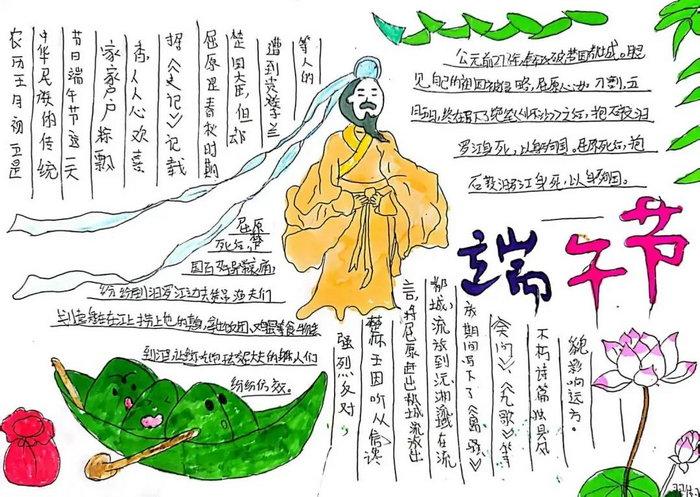 农历五月初五是
中华民族的传统
节日端午节这一天
家家户户粽飘
香,人人心欢喜
据《史记》记载
屈原是春秋时期
楚国大臣,但却
遭到贵族子兰
等人的
强烈反对,
楚怀王因听从谗
言,将屈原赶出都城流放出
都城,流放到沅湘流域在流
放期间写下了《离骚》
《天问》、《九歌》等
不朽诗篇独具风
貌影响远方。
公元前278年,秦军攻破楚国都城。眼
见自己的祖国被侵略,屈原心如刀割,五
月五日,终在写下了绝笔《怀沙》之后,抱石投汨
罗江身死,以身殉国。屈原死后,抱
石投汨罗江身死,以身殉国。
端午节
屈原
死后,楚
国百姓异常哀痛,
纷纷到汨罗江边去凭吊渔夫们
在江上
到江
纷纷仿效。